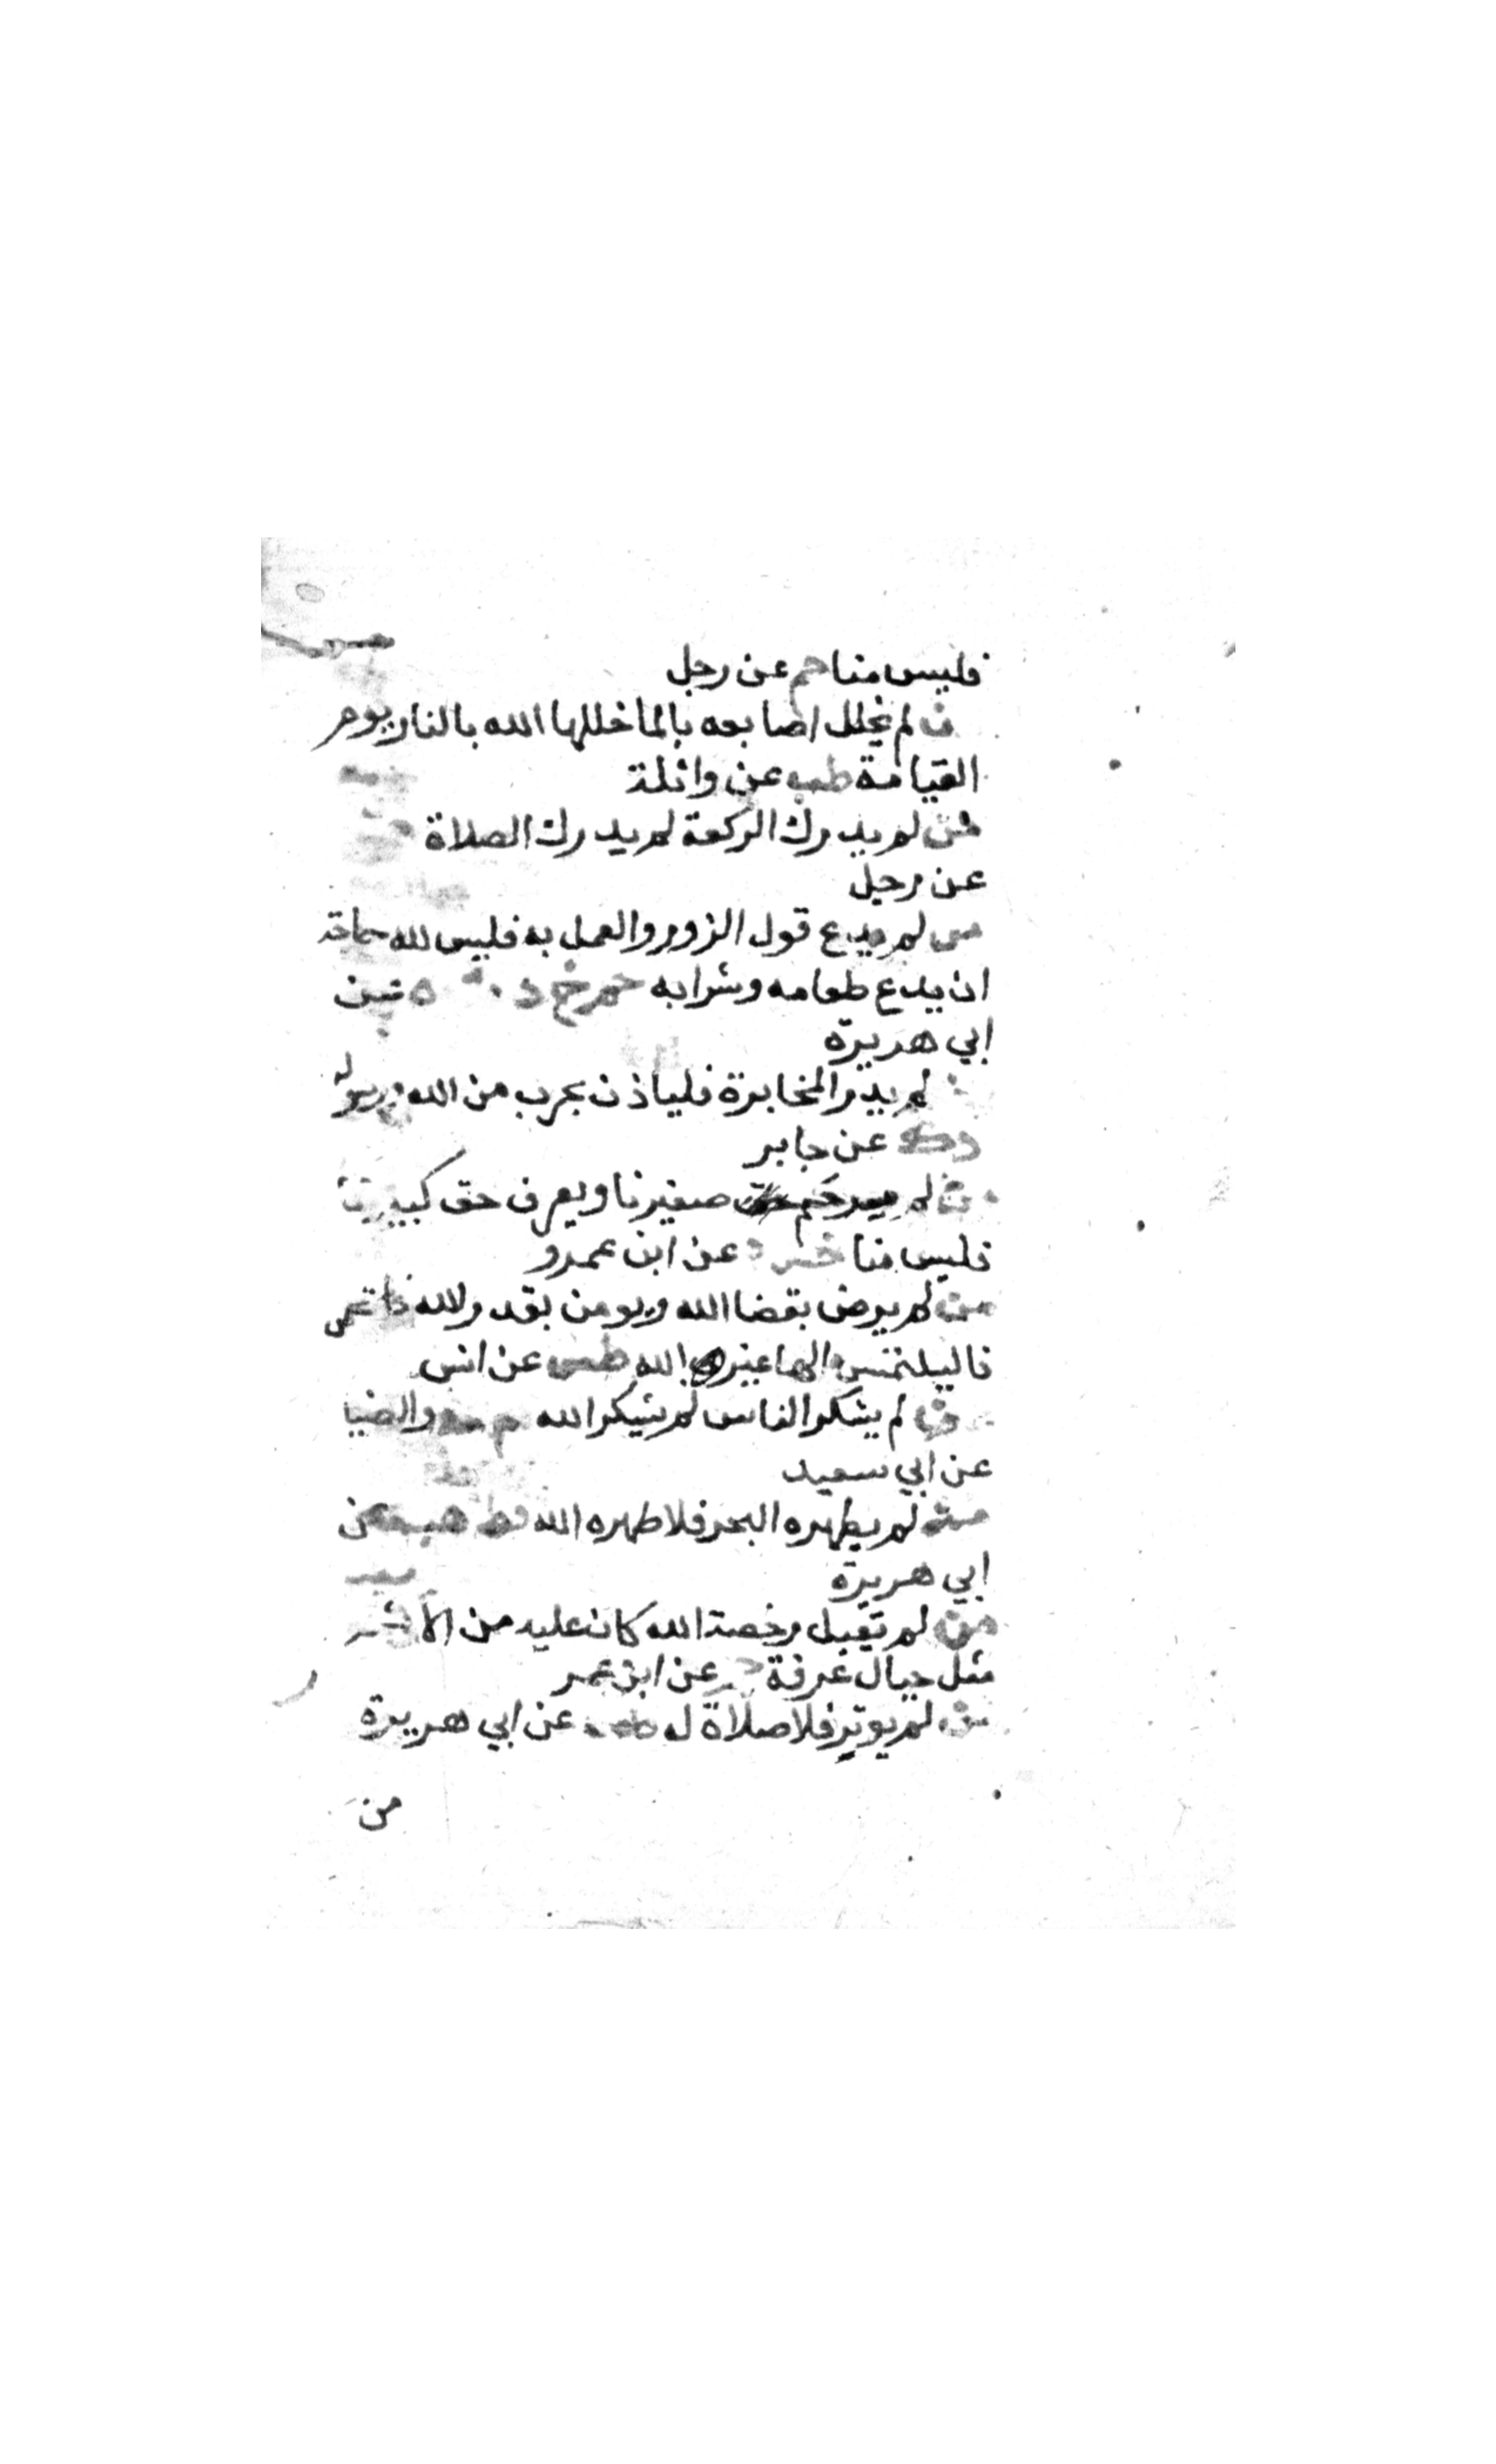 فليس منا حم عن رجل
من لم يخلل اصابعه بالما خللها الله بالنار يوم
القيامة طب عن واثلة
من لم يدرك الركعة لم يدرك الصلاة
عن رجل
من لم يدع قول الزور والعمل به فليس لله حاجة
ان يدع طعامه وشرابه حم خ د ت ه عن
ابي هريرة
لم يذر المخابرة فلياذن بحرب من الله ورسوله
د ك عن جابر
من لم يرحم صغيرنا ويعرف حق كبيرنا
فليس منا خد د عن ابن عمرو
من لم يرض بقضا الله ويومن بقدر الله
فاليلتمس الها غير الله طس عن انس
من لم يشكر الناس لم يشكر الله حم والضيا
عن ابي سعيد
من لم يطهره البحر فلا طهره الله قط هب عن
ابي هريرة
من لم يقبل رخصة الله كان عليه من الاثم
مثل جبال عرفة حم عن ابن عمر
من لم يوتر فلا صلاة له طس عن ابي هريرة
من